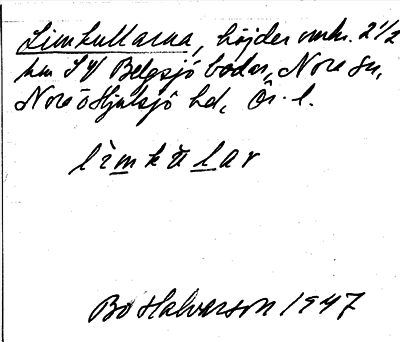 Limkullarna, höjder omkr. 2 1/2
km SV Belgsjö bodar, Nora sn,
Nora ö Hjulsjö hd, Ör. l.
lìmkùlar
Bo Halvarson 1947